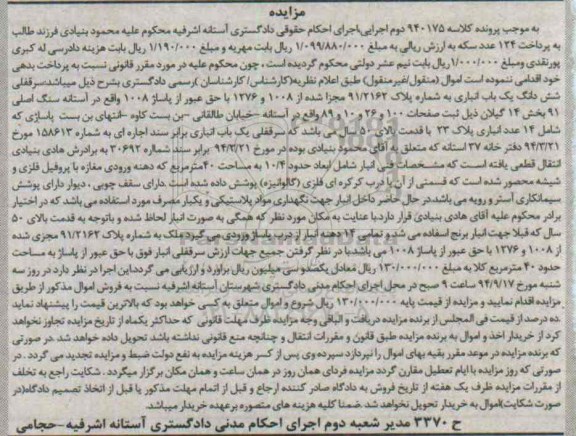 مزایده
به موجب پرونده کلاسه ۹۴۰۱۷۵ دوم اجرایی،اجرای احکام حقوقی دادگستری آستانه اشرفیه محکوم علیه محمود بنیادی فرزند طالب
به پرداخت ۱۲۴ عدد سکه به ارزش ریالی به مبلغ ۱/۰۹۹/۸۸۰/۰۰۰ ریال بابت مهریه و مبلغ ۱/۱۹۰/۰۰۰ ریال بابت هزینه دادرسی له کبری
پورنقدی ومبلغ ۱/۰۰۰/۰۰۰ ریال بابت نیم عشر دولتی محکوم گردیده است ، چون محکوم علیه در مورد مقرر قانونی نسبت به پرداخت بدهی
خود اقدامی ننموده است اموال (منقول /غیرمنقول) طبق اعلام نظریه(کارشناس/ کارشناسان )رسمی دادگستری بشرح ذیل میباشد.سرقفلی
شش دانگ یک باب انباری به شماره پلاک ۹۱/۲۱۶۲ مجزا شده از ۱۰۰۸ و ۱۲۷۶ با حق عبور از پاساژ ۱۰۰۸ واقع در آستانه سنگ اصلی
۹۱ بخش ۱۴ گیلان ذیل ثبت صفحات ۱۰۰ و ۱۰۴ و ۸۹ واقع در آستانه –خیابان طالقانی –بن بست کاوه –انتهای بن بست پاساژی که
شامل ۱۴ عدد انباری پلاک ۲۳ با قدمت بالای ۵۰ سال می باشد که سرقفلی یک باب انباری برابر سند اجاره ای به شماره ۱۵۸۶۱۳ مورخ
۹۴/۳/۲۱ دفتر خانه ۲۷ استانه که متعلق به آقای محمود بنیادی بوده در مورخ ۹۴/۲/۲۱ برابر سند شماره ۳۰۶۹۲ به برادرش هادی بنیادی
انتقال قطعی یافته است که مشخصات فنی انبار شامل ابعاد حدود ۱۰/۴ به مساحت ۴۰مترمربع که دهنه ورودی مغازه با پروفیل فلزی و
شیشه محصور شده است که قسمتی از آن با درب کرکره ای فلزی (گالوانیزه) پوشش داده شده است .دارای سقف چوبی ، دیوار دارای پوشش
سیمانکاری آستر و رویه می باشد.در حال حاضر داخل انبار جهت نگهداری مواد پلاستیکی و یکبار مصرف مورد استفاده می باشد که در اختیار
برادر محکوم علیه آقای هادی بنیادی قرار دارد.با عنایت به مکان مورد نظر که همگی به صورت انبار لحاظ شده و باتوجه به قدمت بالای ۵۰
سال که قبلا جهت انبار برنج اسفاده می شد.و تمامی ۱۴ دهنه انبار از درب پاساژ ورودی می گیرد.مملک به شماره پلاک ۹۱/۲۱۶۲ مجزی شده
از ۱۰۰۸ و ۱۲۷۶ با حق عبور از پاساژ ۱۰۰۸ می باشد.با در نظر گرفتن جمیع جهات ارزش سرقفلی انبار فوق با حق عبور از پاساژ به مساحت
حدود ۴۰ مترمربع کلا به مبلغ ۱۳۰/۰۰۰/۰۰۰ ریال معادل یکصدو سی میلیون ریال براورد و ارزیابی می گردد.این اجرا در نظر دارد در روز سه
شنبه مورخ ۹۴/۹/۱۷ ساعت ۹ صبح در محل اجرای احکام مدنی دادگستری شهرستان آستانه اشرفیه نسبت به فروش اموال مذکور از طریق
مزایده اقدام نمایید و مزایده از قیمت پایه ۱۳۰/۰۰۰/۰۰۰ ریال شروع و اموال متعلق به کسی خواهد بود که بالاترین قیمت را پیشنهاد نماید
.ده درصد از قیمت فی المجلس از برنده مزایده دریافت و الباقی وجه مزایده ظرف مهلت قانونی که حداکثر یکماه از تاریخ مزایده تجاوز نخواهد
کرد از خریدار اخذ و اموال به برنده مزایده طبق قانون و مقررات انتقال و چنانچه منع قانونی نداشته باشد تحویل داده خواهد شد .در صورتی
که برنده مزایده در موعد مقرر بقیه بهای اموال را نپردازد سپرده وی پس از کسر هزینه مزایده به نفع دولت ضبط و مزایده تجدید می گردد . در
صورتی که روز مزایده با ایام تعطیل مقارن گردد مزایده فردای همان روز در همان ساعت و همان مکان برگزار میگردد . شکایت راجع به تخلف
از مقررات مزایده ظرف یک هفته از تاریخ فروش به دادگاه صادر کننده ارجاع و قبل از اتمام مهلت مذکور یا قبل از اتخاذ تصمیم دادگاه(در
صورت شکایت)اموال به خریدار تحویل نخواهد شد .ضمنا کلیه هزینه های متصوره برعهده خریدار میباشد.
ح ۳۳۷۰ مدیر شعبه دوم اجرای احکام مدنی دادگستری آستانه اشرفیه –حجامی